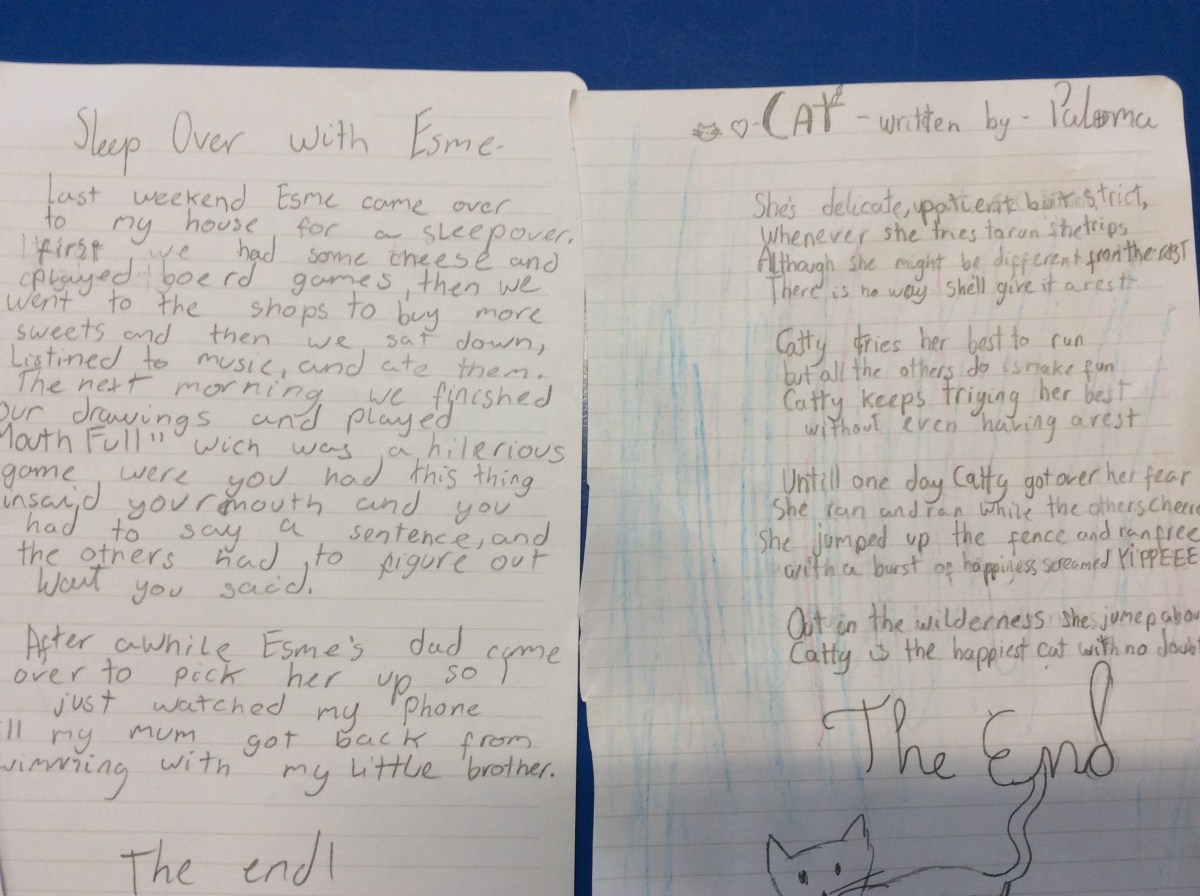 Sleep Over with Esme.
Last weekend Esme came over
to my house for a sleepover.
first we had some cheese and
played boerd games, then we
went to the shops to buy more
sweets and then we sat down,
Listined to music, and ate them.
The next morning we finished
our drawings and played
Mouth Full" wich was a hilerious
game were you had this thing
insaid your mouth and you
had to say a sentence, and
the others had to figure out
Wat you said.
After awhile Esme's dad came
over to pick her up so I
just watched my phone
ll my mum got back from
wimming with my Little brother.
The end!
CAT - written by - Paloma
She's delicate, patient but strict,
Whenever she tries to run she trips
Although she might be different from the rest
There is no way she'll give it a rest
Catty tries her best to run
but all the others do is make fun
Catty keeps triging her best
without even having a rest
Untill one day Catty got over her fear
She ran and ran while the others cheere
She jumped up the fence and ran free
with a burst of happiness screamed YIPPEEE
Out in the wilderness she jumep abou
Catty is the happiest cat with no doub
The End